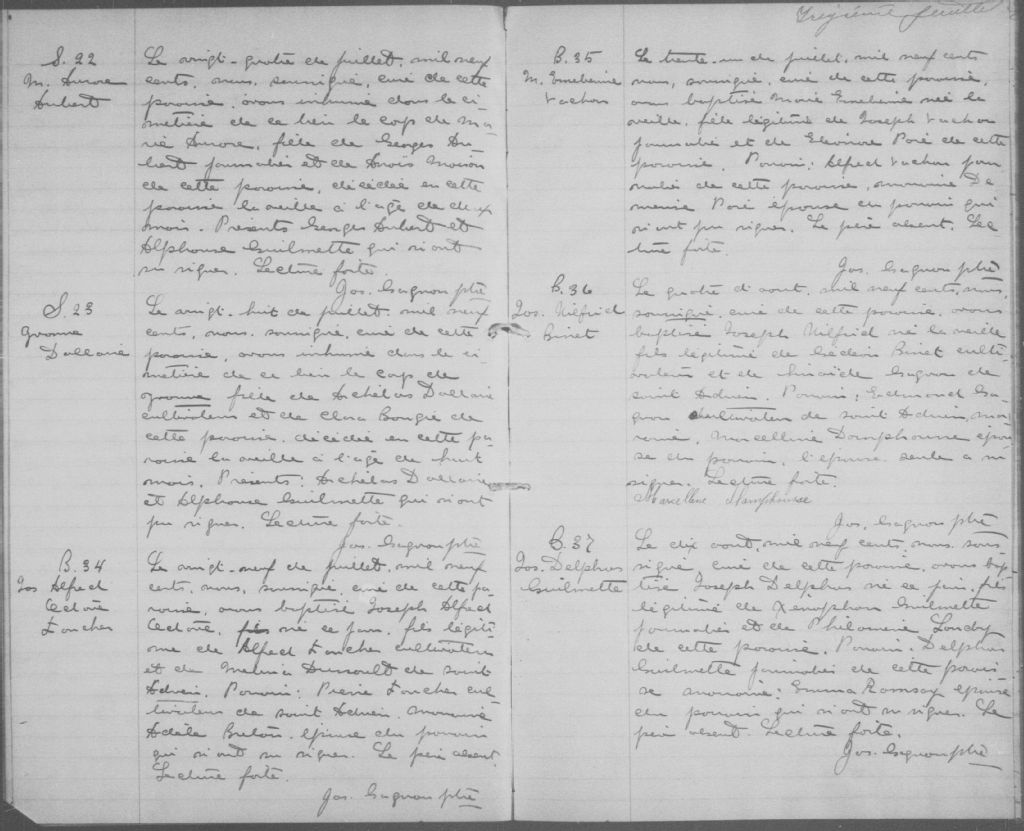 S. 22
M. Aurore
Aubert
Le vingt-quatre de juillet, mil neuf
cents, nous, soussigné, curé de cette
paroisse, avons inhumé dans le ci-
metière de ce lieu le corp de Ma-
rie Aurore, fille de Georges Au-
bert journalier et de Anais Morin
de cette paroisse, décédée en cette
paroisse la veille à l'age de deux
mois. Presents Georges Aubert et
Alphonse Guilmette qui n'ont
su signer. Lecture faite.
Jos. Gagnon ptre
S. 23
Yvonne
Dallaire
Le vingt-huit de juillet, mil neuf
cents, nous, soussigné, curé de cette
paroisse, avons inhumé dans le ci-
metière de ce lieu le corp de
Yvonne fille de Achélas Dallaire
cultivateur et de Clara Bougie de
cette paroisse, décédée en cette pa-
roisse la veille à l'age de huit
mois. Presents: Achélas Dallaire
et Alphonse Guilmette qui n'ont
pu signer. Lecture faite.
Jos. Gagnon ptre
B. 34
Jos Alfred
Cédore
Foucher
Le vingt-neuf de juillet, mil neuf
cents, nous, soussigné, curé de cette pa-
roisse, avons baptisé Joseph Alfred
né ce jour, fils légiti-
me de Alfred Foucher cultivateur
et de Dussault de saint
Adrien. Parrain: Pierre Foucher cul-
tivateur de saint Adrien, marraine
Adèle Breton, épouse du parrain
qui n'ont su signer. Le père absent.
Lecture faite.
Jos. Gagnon ptre
Treizième feuille
B. 35
M. Emebenie
Vachon
Le trente-un de juillet, mil neuf cents
nous, soussigné, curé de cette paroisse,
avons baptisé Marie née la
veille, fille légitime de Joseph Vachon
journalier et de Eléonore Paré de cette
paroisse. Parrain: Alfred Vachon jour-
nalier de cette paroisse, marraine
Paré épouse du parrain qui
n'ont pu signer. Le père absent. Lec-
ture faite.
Jos. Gagnon ptre
B. 36
Jos. Wilfrid
Binet
Le quatre d'aout, mil neuf cents, nous,
soussigné, curé de cette paroisse, avons
baptisé Joseph Wilfrid né la veille
fils légitime de Gédéon Binet culti-
vateur et de Gagnon de
saint Adrien. Parrain: Edmond Ga-
gnon cultivateur de saint Adrien, mar-
raine, Marcelline Damphousse épou-
se du parrain, l'épouse seule a su
signer. Lecture faite.
Marcelline Damphousse
Jos. Gagnon ptre
B. 37
Jos. Delphus
Guilmette
Le dix aout, mil neuf cents, nous, sous-
signé, curé de cette paroisse, avons bap-
tisé Joseph Delphus né ce jour, fils
légitime de Xenophon Guilmette
journalier et de Philomène Landry
de cette paroisse. Parrain: Delphus
Guilmette journalier de cette parois-
se marraine: Emma Ramsay épouse
du parrain qui n'ont su signer. Le
père absent. Lecture faite.
Jos. Gagnon ptre